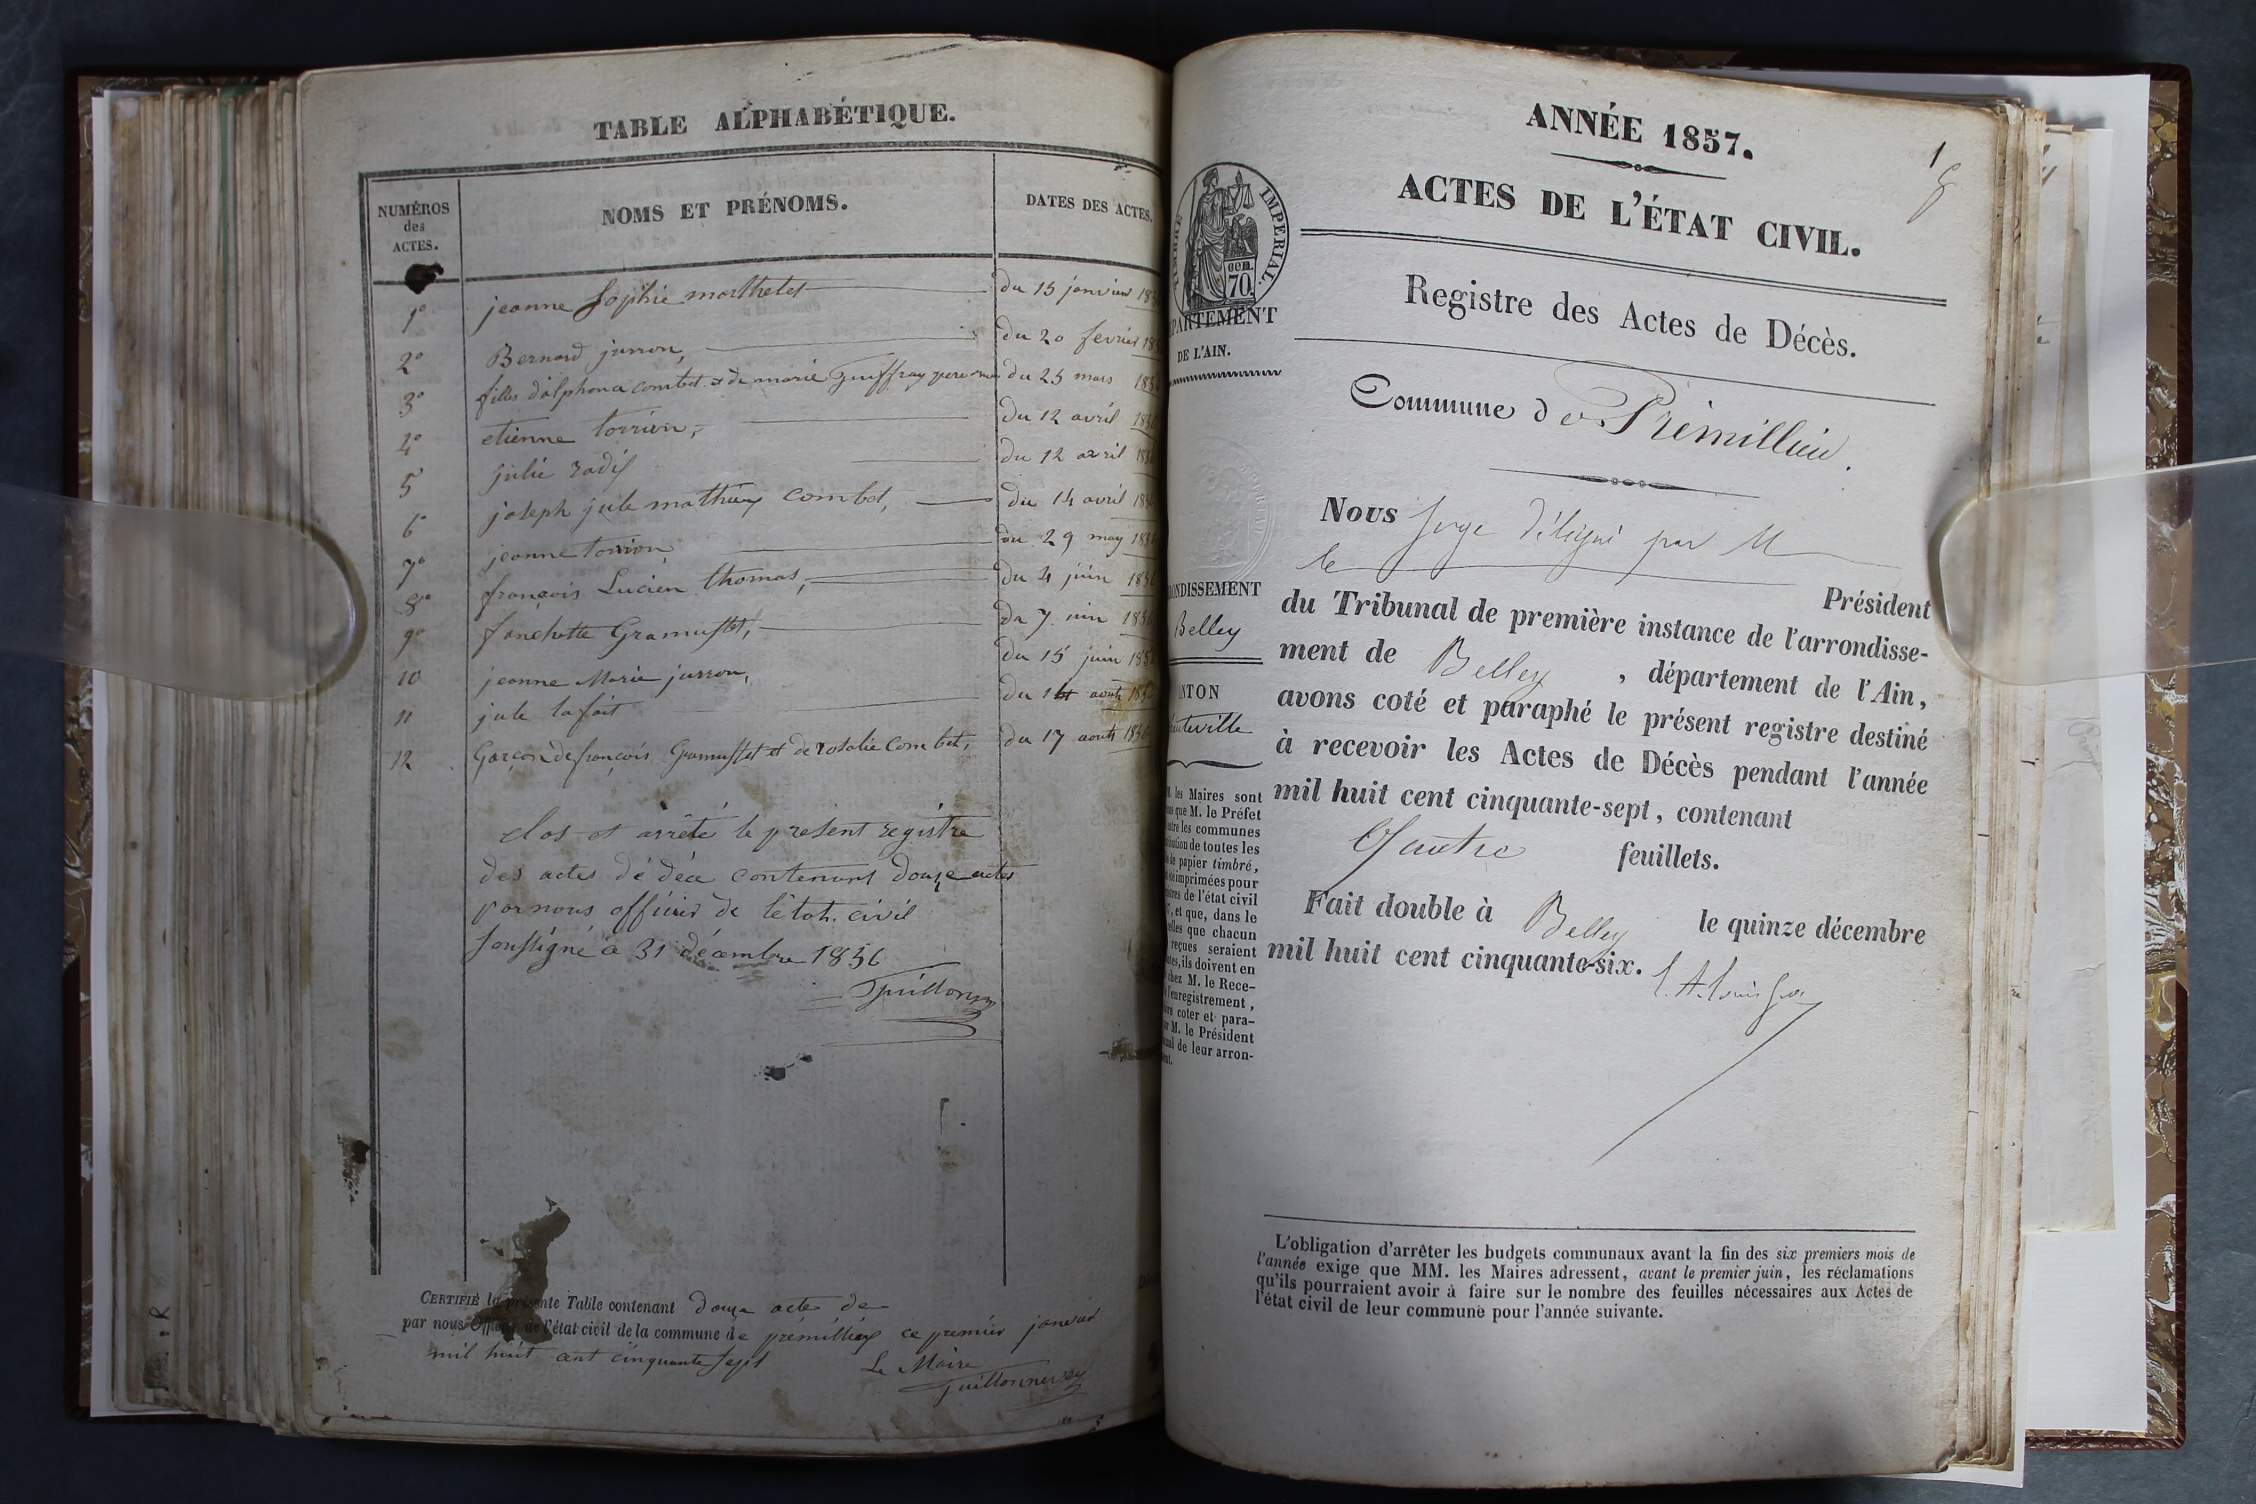 TABLE ALPHABÉTIQUE.
NUMÉROS
des
ACTES.
NOMS ET PRÉNOMS.
DATES DES ACTES.
1° jeanne Sophie morthelet du 15 janvier 18
2° Bernard jurron, du 20 fevrier 18
3° filles d'alphonce combet et de marie Guiffray du 25 mars 185
4° etienne torrion, du 12 avril 1856
5 julie radix du 12 avril 185
6° joseph jule mathieu combet, du 14 avril 185
7° jeanne torrion du 29 may 1856
8° françois Lucien thomas, du 4 juin 1856
9° fanchette Gramusset, du 7 juin 1856
10 jeanne Marie jurron, du 15 juin 185
11 jule lafait du août 185
12 Garçon de françois Gramusset et de rosalie Combet, du 17 août 1856
clos et arrêté le present registre
des actes dé déce contenant douze actes
par nous officier de l'état civil
soussigné ce 31 décembre 1856
CERTIFIÉ la présente Table contenant douze actes de
par nous Officier de l'état civil de la commune de prémillieu ce premier janvier
mil huit cent cinquante sept Le Maire
ANNÉE 1857.
1
ACTES DE L'ÉTAT CIVIL.
TIMBRE IMPÉRIAL.
70 cem.
PARTEMENT
DE L'AIN.
Registre des Actes de Décès.
Commune de Prémillieu.
Nous Juge délégué par M
le Président
du Tribunal de première instance de l'arrondisse-
ment de Belley , département de l'Ain,
avons coté et paraphé le présent registre destiné
à recevoir les Actes de Décès pendant l'année
mil huit cent cinquante-sept, contenant
Quatre feuillets.
Fait double à Belley le quinze décembre
mil huit cent cinquante-six.
ONDISSEMENT
Belley
NTON
uteville
les Maires sont
que M. le Préfet
les communes
de toutes les
de papier timbré,
imprimées pour
de l'état civil
et que, dans le
que chacun
reçues seraient
ils doivent en
chez M. le Rece-
l'enregistrement,
coter et para-
M. le Président
de leur arron-
L'obligation d'arrêter les budgets communaux avant la fin des six premiers mois de
l'année exige que MM. les Maires adressent, avant le premier juin, les réclamations
qu'ils pourraient avoir à faire sur le nombre des feuilles nécessaires aux Actes de
l'état civil de leur commune pour l'année suivante.